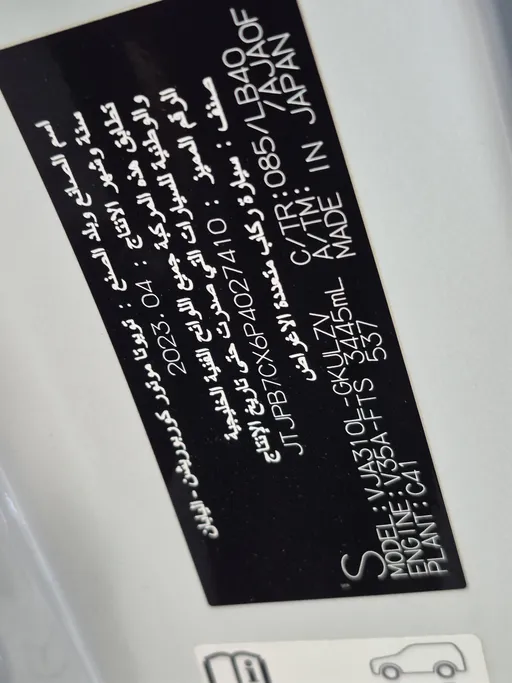 اسم الصانع وبلد الصنع : تويوتا موتور كوربوريشن - اليابان
سنة وشهر الانتاج : 2023.04
تطابق هذه المركبة جميع اللوائح الفنية الخليجية
والوطنية للسيارات التي صدرت حتى تاريخ الإنتاج
الرقم المميز : JTJPB7CX6P4027410
صنف : سيارة ركاب متعددة الاغراض
C/TR: 085/LB40
A/TM: /AJA0F
MADE IN JAPAN
S
MODEL: VJA310L-GKULZV
ENGINE: V35A-FTS 3445mL
PLANT: C41 537